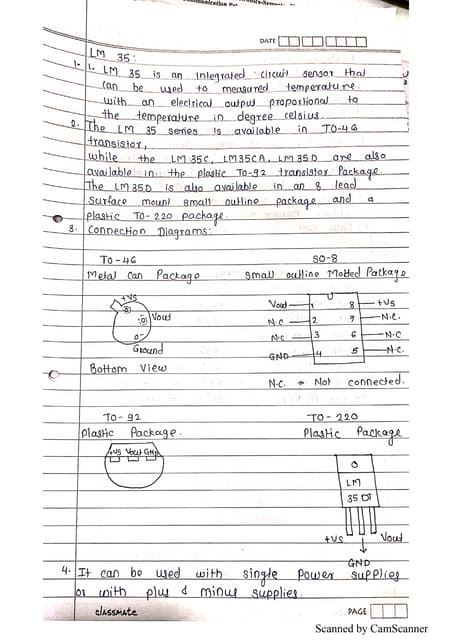 DATE
LM 35:
1. 1. LM 35 is an integrated circuit sensor that
can be used to measured temperature
with an electrical output proportional to
the temperature in degree celsius.
2. The LM 35 series is available in TO-46
transistor,
while the LM 35C, LM35CA, LM 35D are also
available in the plastic TO-92 transistor Package.
The LM35D is also available in an 8 lead
surface mount small outline package and a
plastic TO-220 package.
3. Connection Diagrams:
TO-46 SO-8
Metal Can Package Small outline Molted Package
+Vs
Vout
Ground
Bottom View
Vout 1 8 +Vs
N.C 2 7 N.C.
N.C 3 6 N.C
GND 4 5 N.C.
N.C. → Not connected.
TO-92 TO-220
Plastic Package. Plastic Package
+Vs Vout GND
LM
35 DT
+Vs Vout
GND
4. It can be used with single Power supplies
or with plus & minus supplies.
CLASSMATE PAGE
Scanned by CamScanner